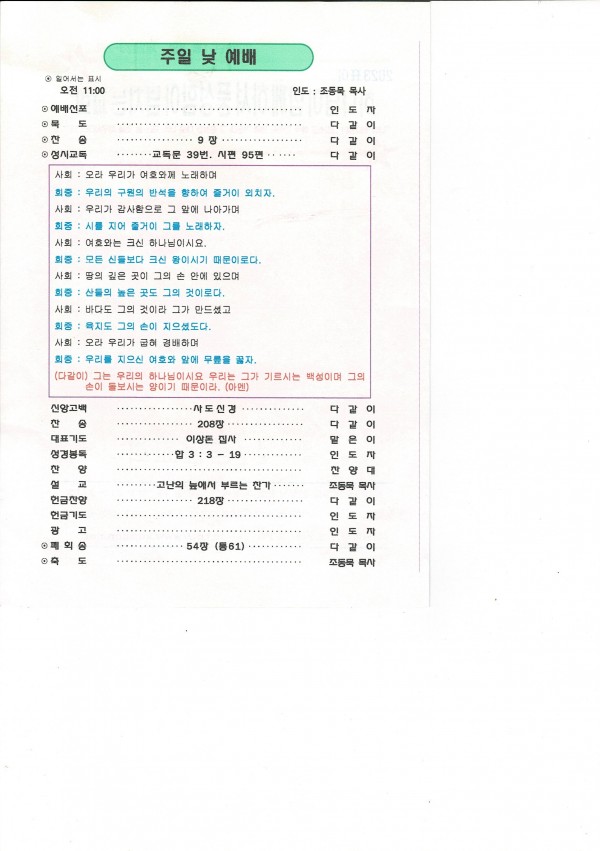 주일 낮 예배
⊙ 일어서는 표시
오전 11:00 인도 : 조동묵 목사
⊙ 예배선포 ········ 인 도 자
⊙ 묵 도 ········ 다 같 이
⊙ 찬 송 ········ 9 장 ········ 다 같 이
⊙ 성시교독 ········ 교독문 39번. 시편 95편 ······ 다 같 이
사회 : 오라 우리가 여호와께 노래하며
회중 : 우리의 구원의 반석을 향하여 즐거이 외치자.
사회 : 우리가 감사함으로 그 앞에 나아가며
회중 : 시를 지어 즐거이 그를 노래하자.
사회 : 여호와는 크신 하나님이시요.
회중 : 모든 신들보다 크신 왕이시기 때문이로다.
사회 : 땅의 깊은 곳이 그의 손 안에 있으며
회중 : 산들의 높은 곳도 그의 것이로다.
사회 : 바다도 그의 것이라 그가 만드셨고
회중 : 육지도 그의 손이 지으셨도다.
사회 : 오라 우리가 굽혀 경배하며
회중 : 우리를 지으신 여호와 앞에 무릎을 꿇자.
(다같이) 그는 우리의 하나님이시요 우리는 그가 기르시는 백성이며 그의
손이 돌보시는 양이기 때문이라. (아멘)
신앙고백 ········ 사도신경 ········ 다 같 이
찬 송 ········ 208장 ········ 다 같 이
대표기도 ········ 이상돈 집사 ········ 맡 은 이
성경봉독 ········ 합 3 : 3 - 19 ········ 인 도 자
찬 양 ········ 찬 양 대
설 교 ········ 고난의 늪에서 부르는 찬가 ······· 조동묵 목사
헌금찬양 ········ 218장 ········ 다 같 이
헌금기도 ········ 인 도 자
광 고 ········ 인 도 자
⊙ 폐 회 송 ········ 54장 (통61) ········ 다 같 이
⊙ 축 도 ········ 조동묵 목사